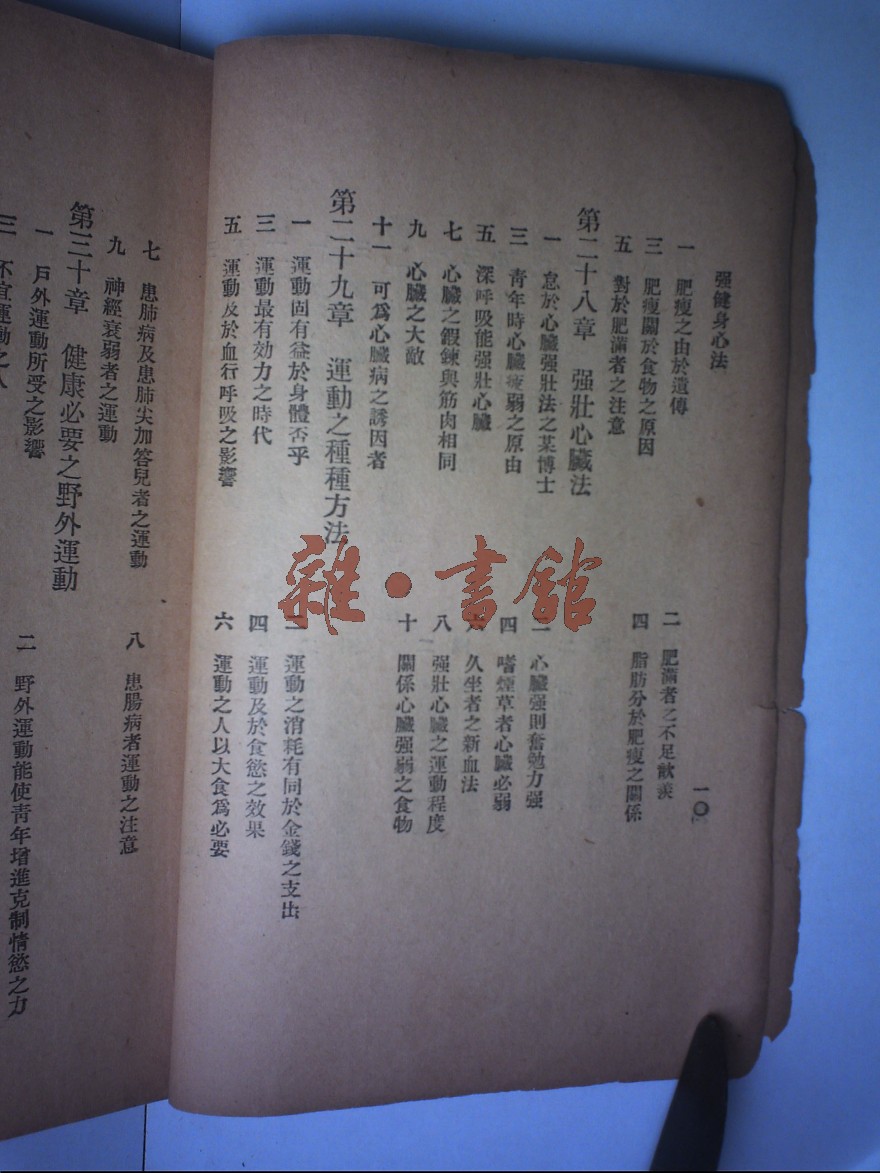 强健身心法
一〇
一 肥瘦之由於遺傳
二 肥滿者之不足歆羨
三 肥瘦關於食物之原因
四 脂肪分於肥瘦之關係
五 對於肥滿者之注意
第二十八章 强壯心臟法
一 怠於心臟强壯法之某博士
二 心臟强則奮勉力强
三 靑年時心臟疲弱之原由
四 嗜煙草者心臟必弱
五 深呼吸能强壯心臟
六 久坐者之新血法
七 心臟之鍛鍊與筋肉相同
八 强壯心臟之運動程度
九 心臟之大敵
十 關係心臟强弱之食物
十一 可爲心臟病之誘因者
第二十九章 運動之種種方法
一 運動固有益於身體否乎
二 運動之消耗有同於金錢之支出
三 運動最有効力之時代
四 運動及於食慾之效果
五 運動及於血行呼吸之影響
六 運動之人以大食爲必要
七 患肺病及患肺尖加答兒者之運動
八 患腸病者運動之注意
九 神經衰弱者之運動
第三十章 健康必要之野外運動
一 戶外運動所受之影響
二 野外運動能使靑年增進克制情慾之力
三 不宜運動之人
雜·書館